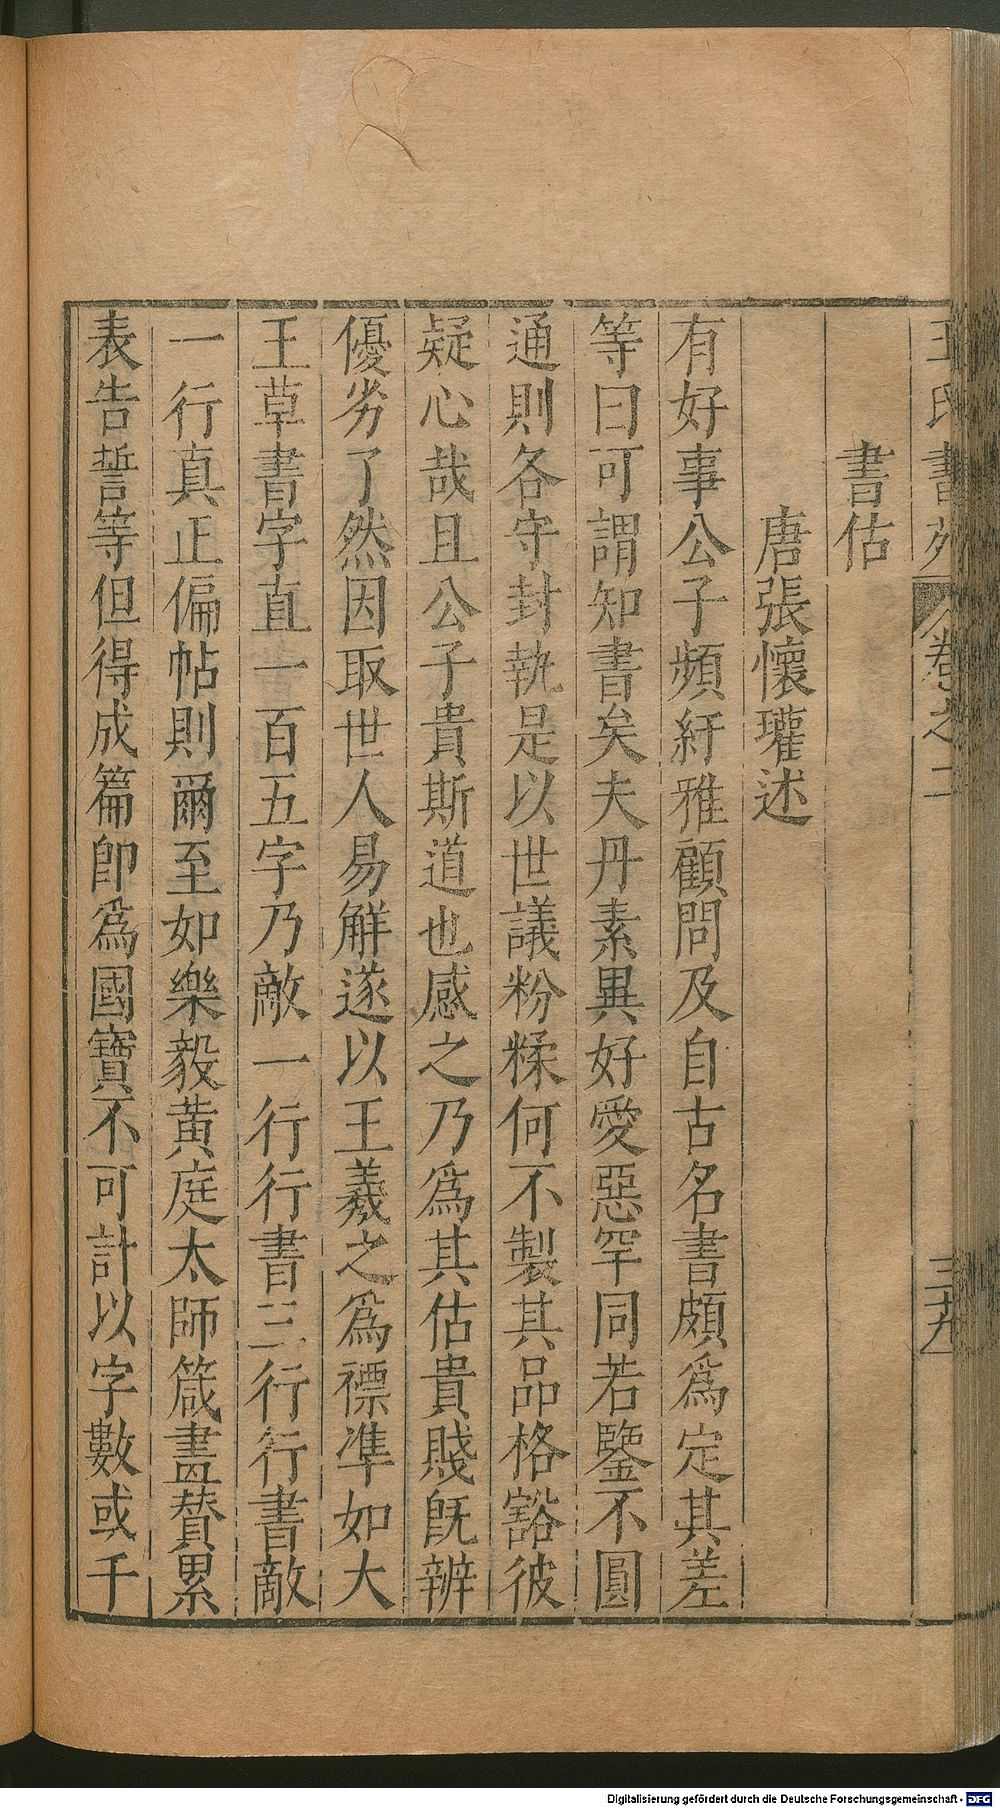 王氏書苑 卷之二 三十九
書估
唐張懷瓘述
有好事公子頻紆雅顧問及自古名書頗爲定其差
等曰可謂知書矣夫丹素異好愛惡罕同若鑒不圓
通則各守封執是以世議粉糅何不製其品格豁彼
疑心哉且公子貴斯道也感之乃爲其估貴賤旣辨
優劣了然因取世人易解遂以王羲之爲褾準如大
王草書字直一百五字乃敵一行行書三行行書敵
一行真正偏帖則爾至如樂毅黃庭太師箴畫賛累
表告誓等但得成篇卽爲國寶不可計以字數或千
Digitalisierung gefördert durch die Deutsche Forschungsgemeinschaft - DFG